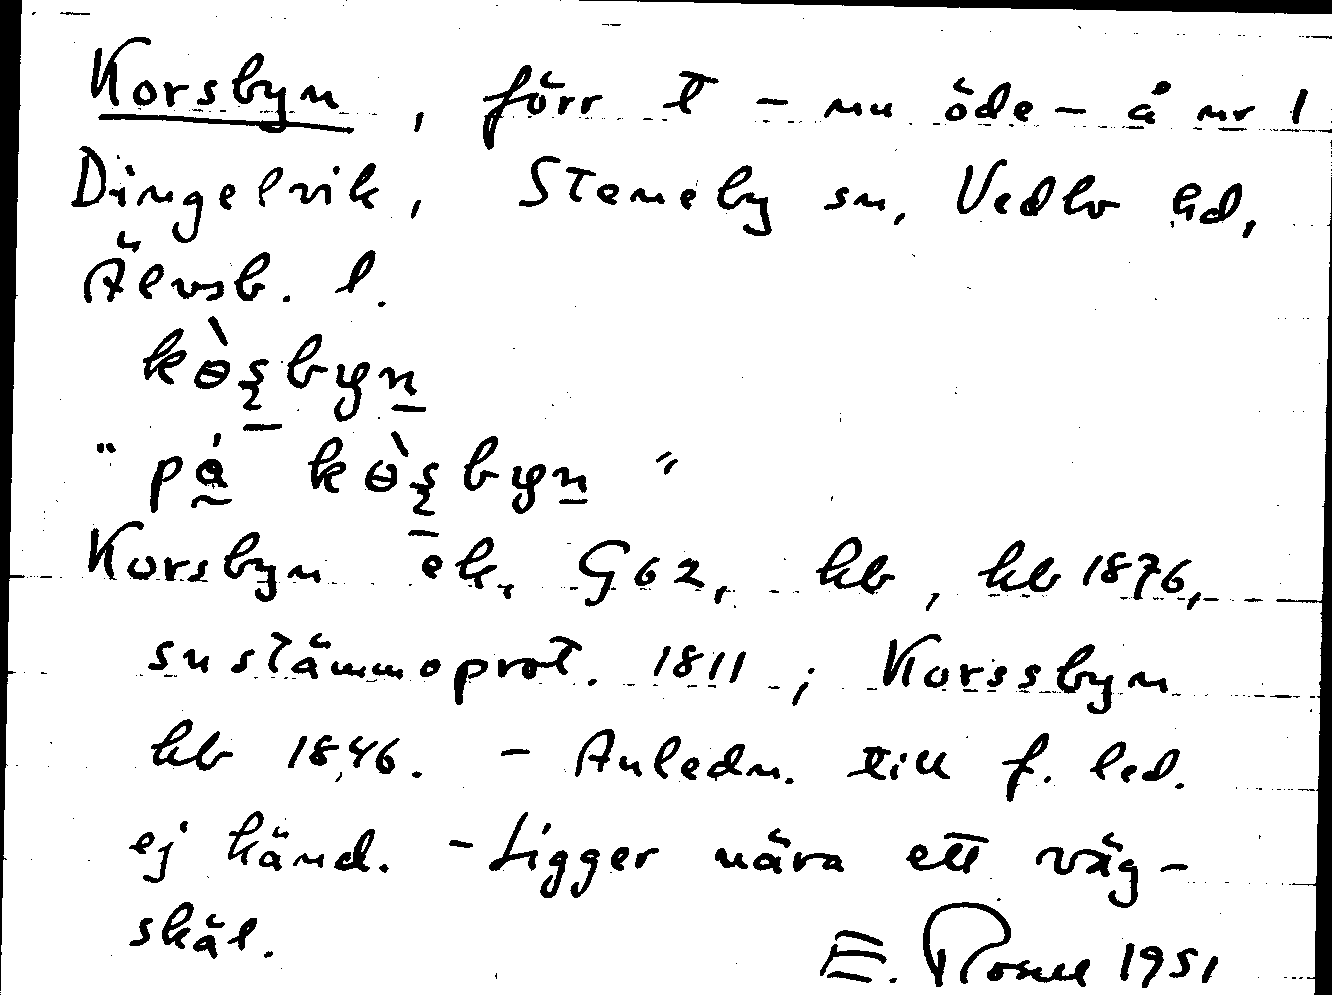 Korsbyn, förr t - nu öde - å nr 1
Dingelvik, Steneby sn, Vedbo hd,
Älvsb. l.
kɵ̀ʂbyn
"på kɵ̀ʂbyn"
Korsbyn ek. G62, kb, hb 1876,
sn stämmoprot. 1811; Korssbyn
kb 1846. - Anledn. till f. led.
ej känd. - Ligger nära ett väg-
skäl.
E. 1951